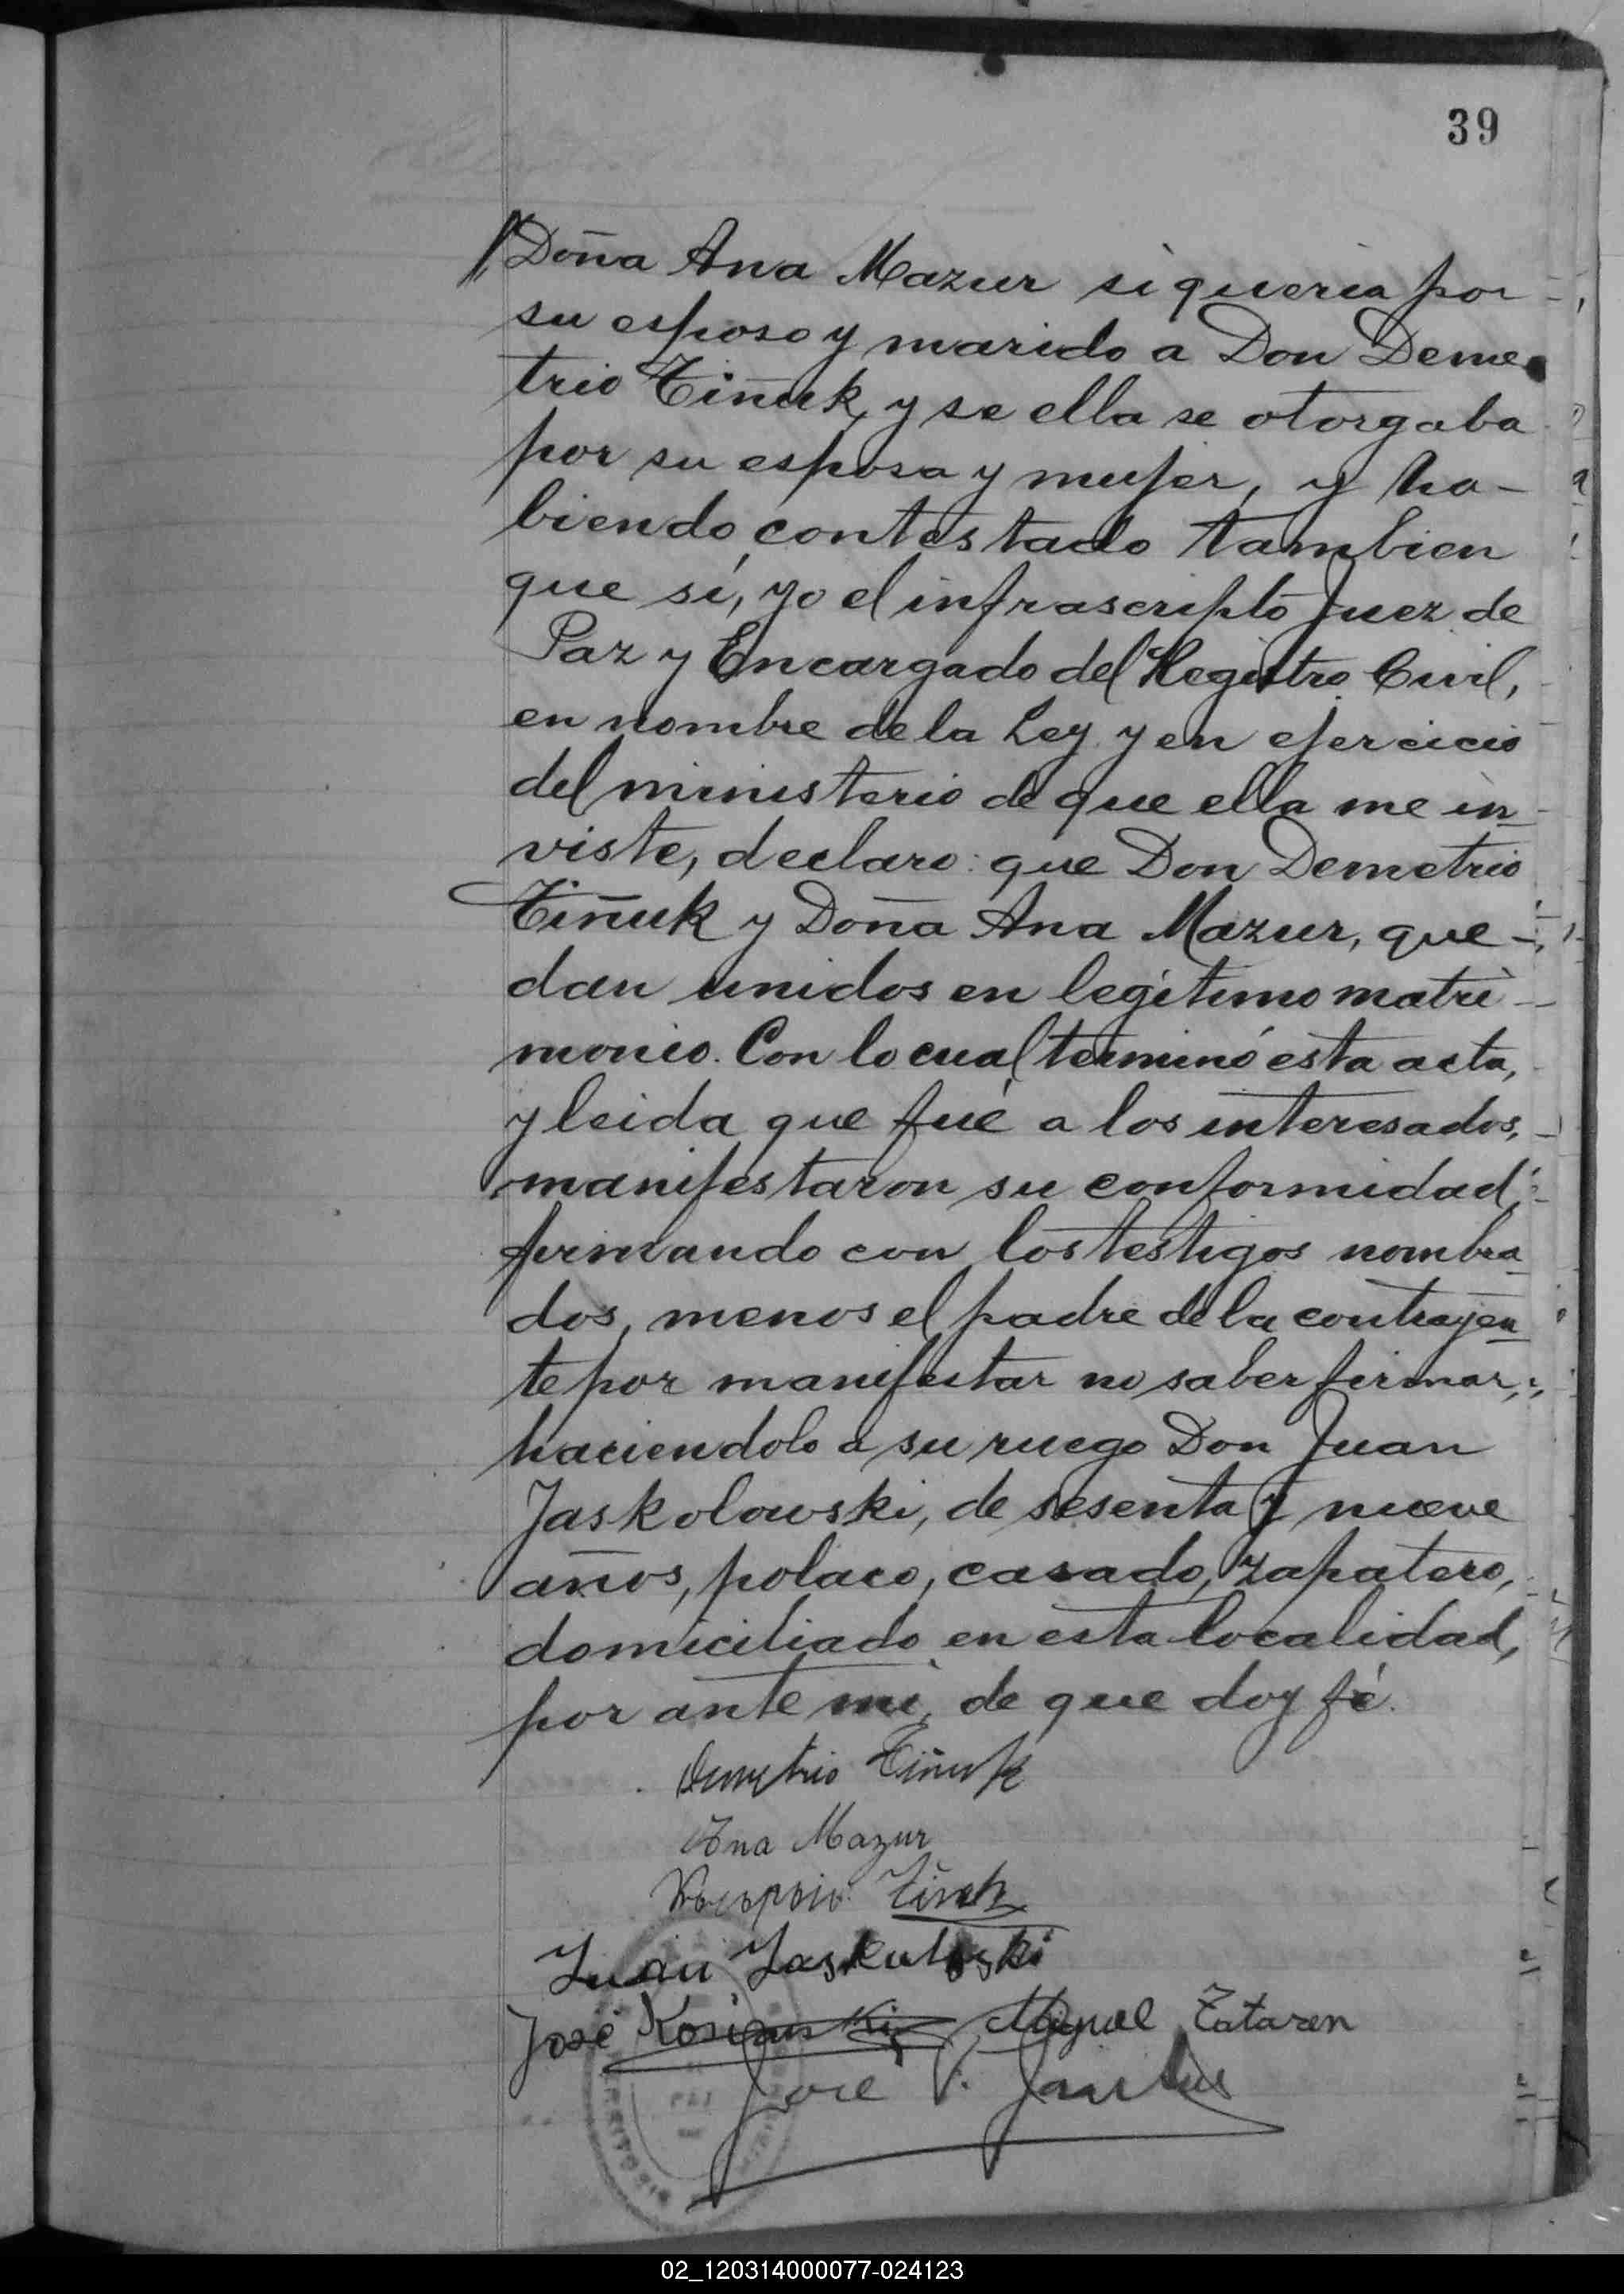 39
Doña Ana Mazur si queria por
su esposo y marido a Don Deme
trio Tiñuk, y se ella se otorgaba
por su esposa y mujer, y ha-
biendo contestado tambien
que sí, yo el infrascripto Juez de
Paz y Encargado del Registro Civil,
en nombre de la Ley y en ejercicio
del ministerio de que ella me in
viste, declaro: que Don Demetrio
Tiñuk y Doña Ana Mazur, que-
dan unidos en legítimo matri-
monio. Con lo cual terminó esta acta,
y leida que fué a los interesados,
manifestaron su conformidad,
firmando con los testigos nombra
dos, menos el padre de la contrayen
te por manifestar no saber firmar,
haciendolo a su ruego Don Juan
Jaskolowski, de sesenta y nueve
años, polaco, casado, zapatero,
domiciliado en esta localidad,
por ante mi, de que doy fé.
Demetrio Tiñuk
Ana Mazur
Juan
José Miguel Tataren
José
02_120314000077-024123